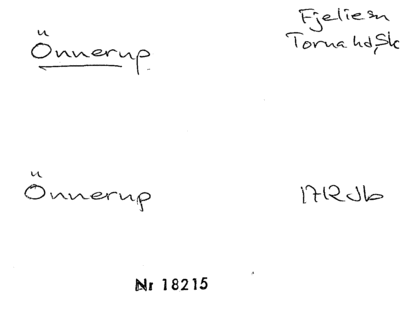 Önnerup
Fjelie sn
Torna hd, Sk
Önnerup
1712 Jb
Nr 18215